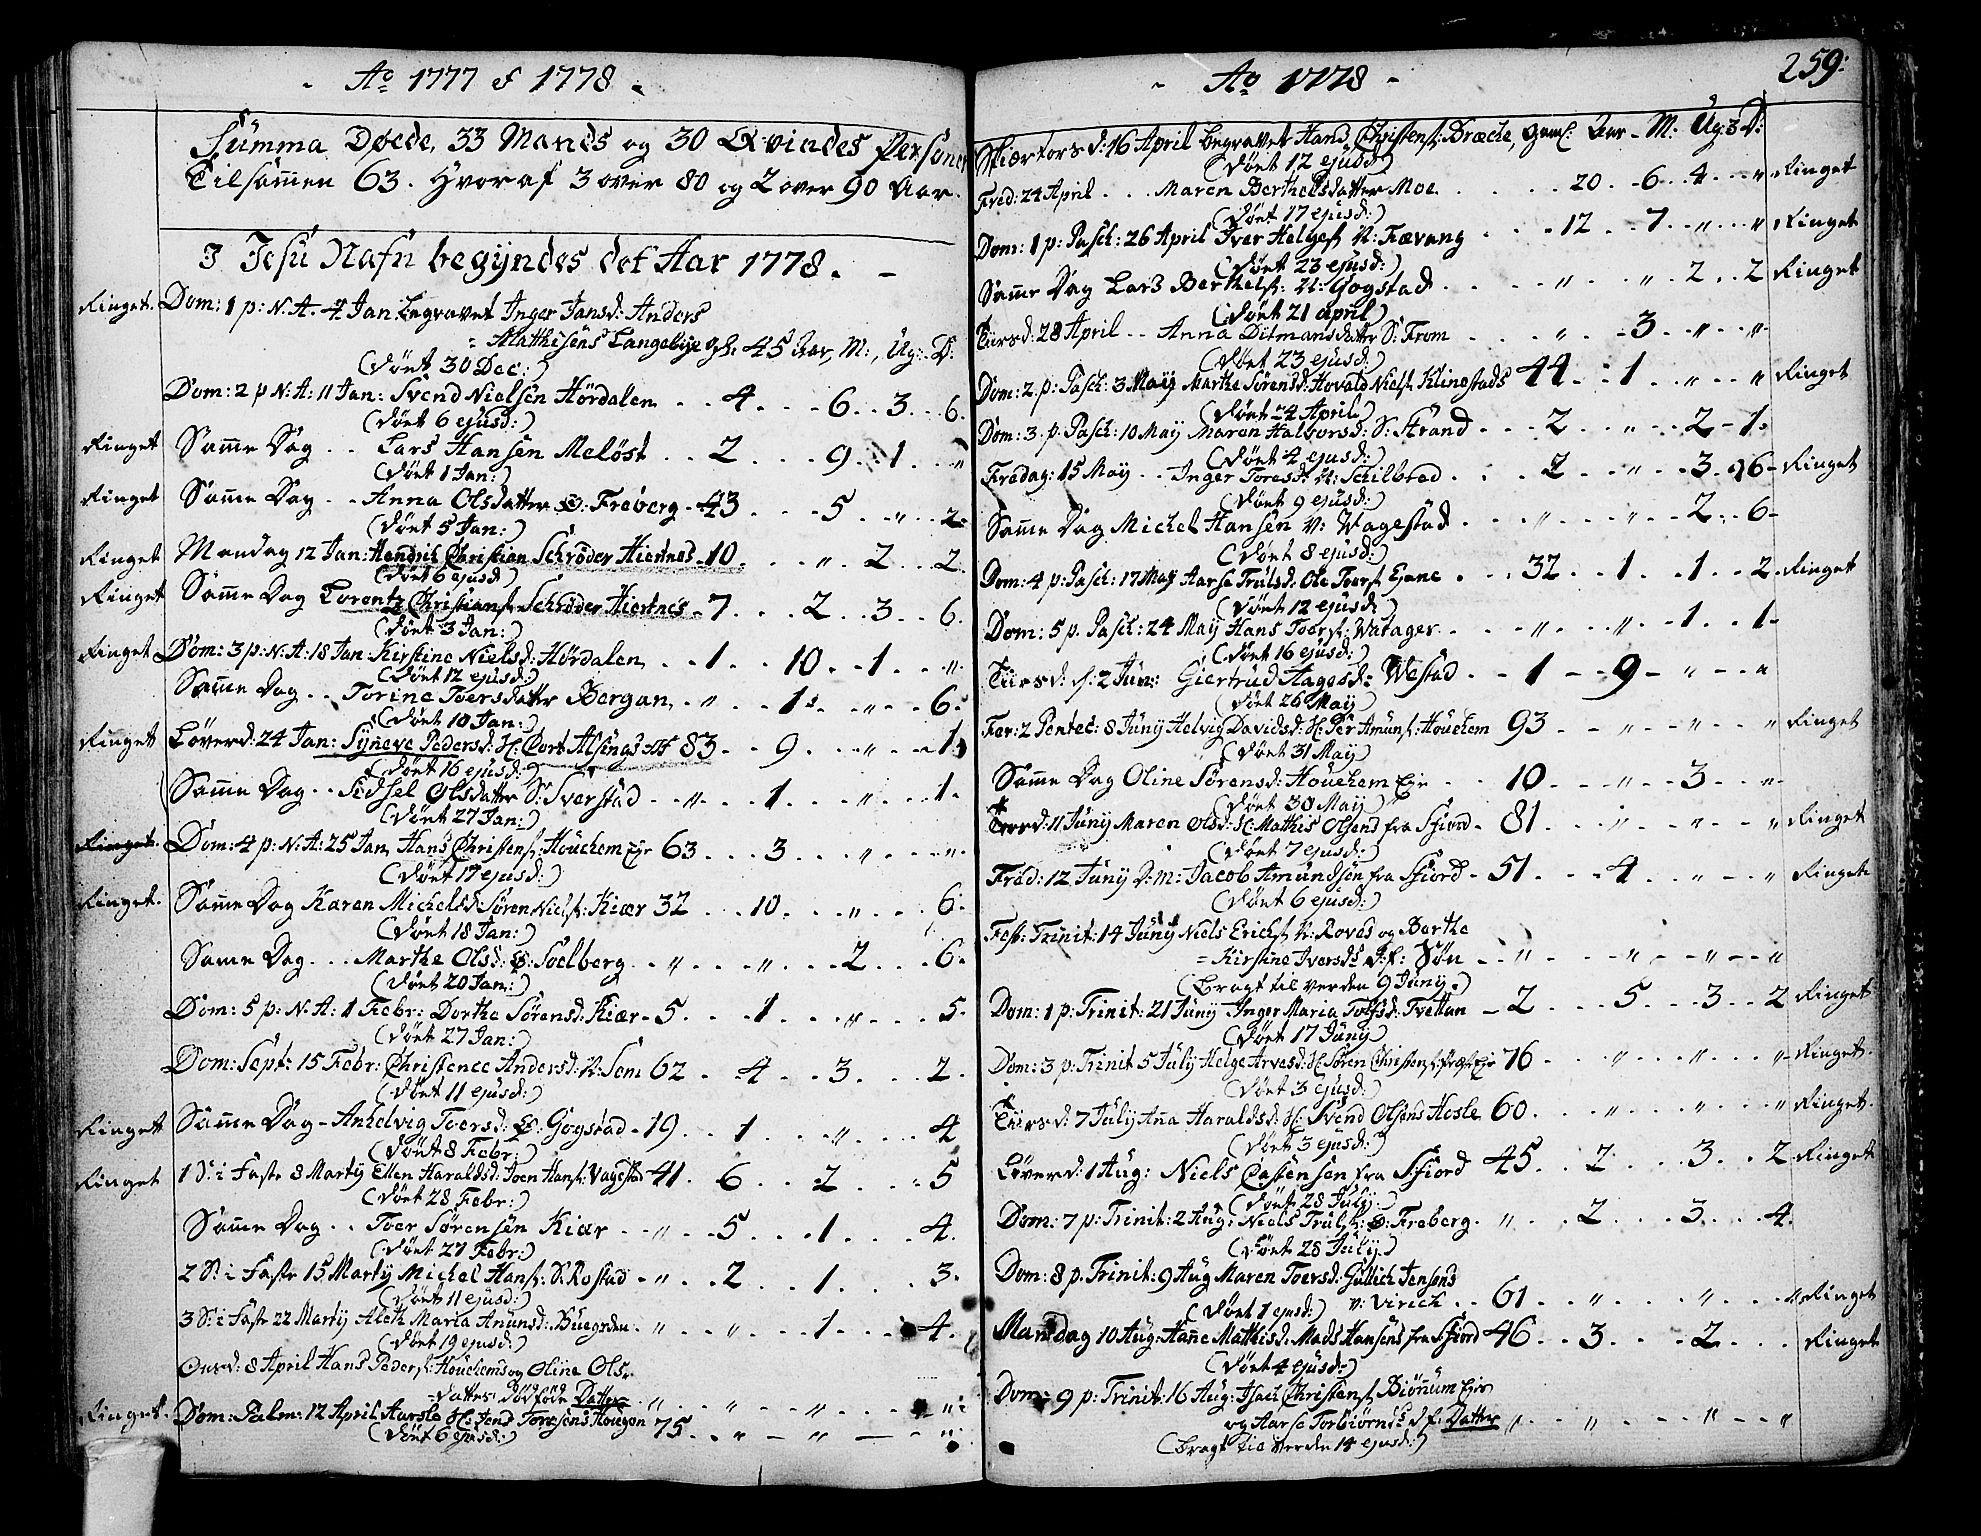 - Ao 1777 & 1778 -
Summa Døede, 33 Mands og 30 Qvindes Personer
Tilsam̄en 63. Hvoraf 3 over 80 og 2 over 90 Aar.
I Jesu Nafn begyndes det Aar 1778. -
Ringet. Dom: 1 p: N. A. 4 Jan. begravet Inger Jansd: Anders
Matthisens Langebye gl. 45 Aar, M:, Ug:, D:
(døet 30 Dec:)
Dom: 2 p N: A: 11 Jan: Svend Nielsen Hørdalen . . 4 . . . 6 . . 3 . . 6.
(døet 6 ejusd:)
Ringet Sam̄e Dag . . Lars Hansen Meløst . . 2 . . . 9 . . 1 . . "
(døet 1 Jan:)
Ringet Sam̄e Dag . . Anna Olsdatter Ø: Freberg - 43 . . . 5 . . " . . 2.
(døet 5 Jan:)
Ringet Mandag 12 Jan: Hendrich Christian Schrøder Hiertnes - 10 . . . " . . 2 . . 2.
(døet 6 ejusd)
Ringet Sam̄e Dag Lorentz Christians: Schrøder Hiertnes - 7 . . . 2 . . 3 . . 6.
(døet 3 Jan:)
Ringet Dom: 3 p: N: A: 18 Jan: Kirstine Nielsd: Hørdalen . . 1 . . 10 . . 1 . . "
(døet 12 ejusd:)
Sam̄e Dag . . Torine Toersdatter Bergan . . " . . 1 . . " . . 6.
(døet 10 Jan:)
Ringet Løverd: 24 Jan: Syneve Pedersd: H: Cort Alsings 83 . . 9 . . " . . 1.
(døet 16 ejusd:)
Sam̄e Dag . . Sidsel Olsdatter S: Sverstad . . " . . 1 . . " . . 1.
(døet 27 Jan:)
Ringet. Dom: 4 p: N: A: 25 Jan. Hans Christens: Houchem Eje 63 . . . 3 . . " . . "
(døet 17 ejusd:)
Ringet. Sam̄e Dag Karen Michelsd: Søren Niels: Kiær 32 . . 10 . . " . . 6.
(døet 18 Jan:)
Sam̄e Dag . . . Marthe Olsd: Ø: Soelberg . . " . . " . . 2 . . 6.
(døet 20 Jan:)
Dom: 5 p: N: A: 1 Febr: Dorthe Sørensd: Kiær - 5 . . 1 . . " . . 5.
(døet 27 Jan:)
Dom: Sept: 15 Febr: Christence Andersd: N: Sem 62 . . 4 . . 3 . . 2.
(døet 11 ejusd:)
Ringet Sam̄e Dag - Anhelvig Toersd: Ø: Gogstad - 19 . . 1 . . " . . 4
(døet 8 Febr:)
Ringet 1 S: i Faste 8 Martij Ellen Haraldsd: Joen Hans: Vagestad 41 . 6 . . 2 . . 5
(døet 28 Febr:)
Sam̄e Dag . . Toer Sørensen Kiær . . " . . 5 . . 1 . . 4.
(døet 27 Febr:)
2 S: i Faste 15 Martij Michel Hans: S: Rostad - " . . 2 . . 1 . . 3.
(døet 11 ejusd:)
3 S: i Faste 22 Martij Aleth Maria Anunsd: Buegrden . " . . " . . 1 . . 4.
(døet 19 ejusd:)
Onsd: 8 April Hans Peders: Houchems og Oline Ols-
datters dødføde Datter . " . . " . . " . . "
Ringet. Dom: Palm: 12 April Aarsle H: Jens Toresens Hougen 75 . . " - " - "
(døet 6 ejusd:)
- Ao 1778 -
259:
Skiærtorsd: 16 April begravet Hans Christens: Bræche, gaml: Aar - M: Ug: D:
(døet 12 ejusd)
Fred: 24 April . . . Maren Berthelsdatter Moe . . . 20 . . 6 . . 4 . . " Ringet
(døet 17 ejusd:)
Dom: 1 p: Pasch: 26 April Iver Helges: N: Fævang . . . 12 . . 7 . . " . . " Ringet
(døet 23 ejusd:)
Sam̄e Dag Lars Berthels: N: Gogstad . . . " . . " . . 2 . . 2 Ringet
(døet 21 april)
Tiirsd: 28 April . . Anna Ditmansdatter S: From . . . " . . 3 . . " . . "
(døet 23 ejusd:)
Dom: 2. p: Pasch: 3 Maij Marthe Sørensd: Hovald Niels: Klinestads 44 . . 1 . . " . . " Ringet
(døet 24 April)
Dom: 3. p: Pasch: 10 Maij Maren Halvorsd: S: Strand . . . 2 . . " . . 2 - 1.
(døet 4 ejusd:)
Fredag: 15 Maij . . Inger Toresd: N: Schilbred . . . 2 . . " . . 3 . 6 - Ringet
(døet 9 ejusd:)
Sam̄e Dag Michel Hansen V: Wagestad . . . " . . " . . 2 . . 6 -
(døet 8 ejusd:)
Dom: 4 p: Pasch: 17 Maij Aarse Trulsd: Ole Toers: Ejene . . 32 . . 1 . . 1 . . 2 . Ringet
(døet 12 ejusd)
Dom: 5 p. Pasch: 24 Maij Hans Toers: Watager . . " . . " . . 1 . . 1 -
(døet 16 ejusd:)
Tiirsd: d. 2 Jun: Giertrud Aagesd: Westad . . 1 - - 9 - " - - "
(døet 26 Maij)
Fer: 2 Pentec: 8 Junij Helvig Davidsd: H: Per Amuns: Houchem 93 . - " - " - " Ringet
(døet 31 Maij)
Sam̄e Dag Oline Sørensd: Houchem Eje . . 10 . . " . . 3 . . "
(døet 30 Maij)
Torsd: 11 Junij Maren Olsd: H: Mathis Olsens fra Sfiord - 81 . . " . . " - " Ringet
(døet 7 ejusd:)
Fred: 12 Junij S: M: Jacob Amundsen fra Sfiord - 51 . . 4 . . " - " Ringet.
(døet 6 ejusd:)
Fest: Trinit: 14 Junij Niels Erichs: N: Roves og Berthe
Kirstine Iversds d: f: Søn - " . . " - " - "
(Bragt til verden 9 Junij.)
Dom: 1 p: Trinit: 21 Junij Inger Maria Tolfsd: Tvettan - 2 . . 5 . . 3 . . 2 Ringet
(døet 17 Junij)
Dom: 3 p: Trinit: 5 Julij Helge Arvesd: H: Søren Christens: Eje 76 . . " . . " . . " Ringet.
(døet 3 ejusd:)
Tiirsd: 7 Julij Ana Haraldsd: H: Svend Olsens Hesle 60 . . " . . " . . " Ringet.
(døet 3 ejusd:)
Løverd: 1 Aug: Niels Castensen fra Sfiord 45 . . 2 . . 3 . . 2 . Ringet
(døet 28 Julij:)
Dom: 7 p: Trinit: 2 Aug: Niels Truls: Ø: Freberg . " . . 2 . . 3 . . 4.
(døet 28 Julij)
Dom: 8 p. Trinit: 9 Aug Maren Toersd: Gullich Jensens
(døet 1 ejusd:) v: Virich . . 61 . . " . . " . . " Ringet
Mandag 10 Aug: Han̄e Mathisd: Mads Hansens fra Sfiord 46 . . 3 . . 2 . . . Ringet
(døet 4 ejusd:)
Dom: 9 p: Trinit: 16 Aug: Isach Christens: Biørnum Eje
og Aarse Torbiørnds d. f: Datter " . . " . . " - "
(bragt til verden 14 ejusd:)